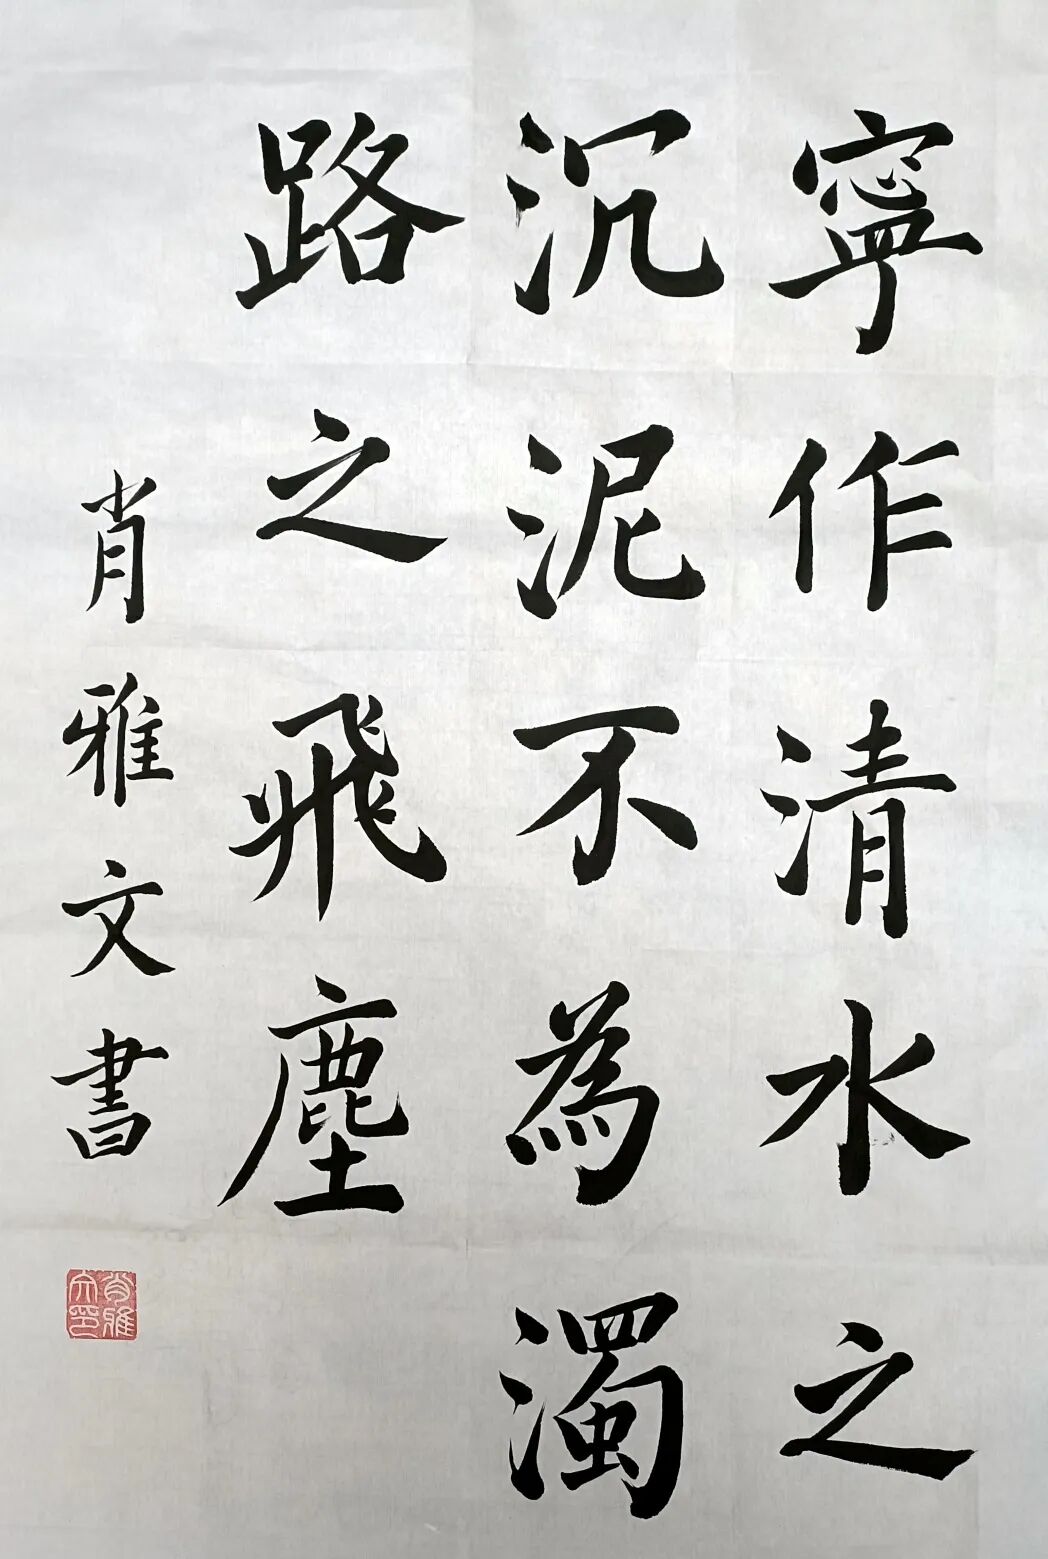 寧作清水之
沉泥不為濁
路之飛塵
肖雅文書
肖雅文印